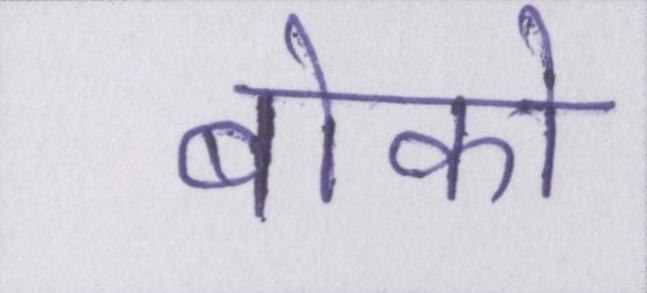 बोको